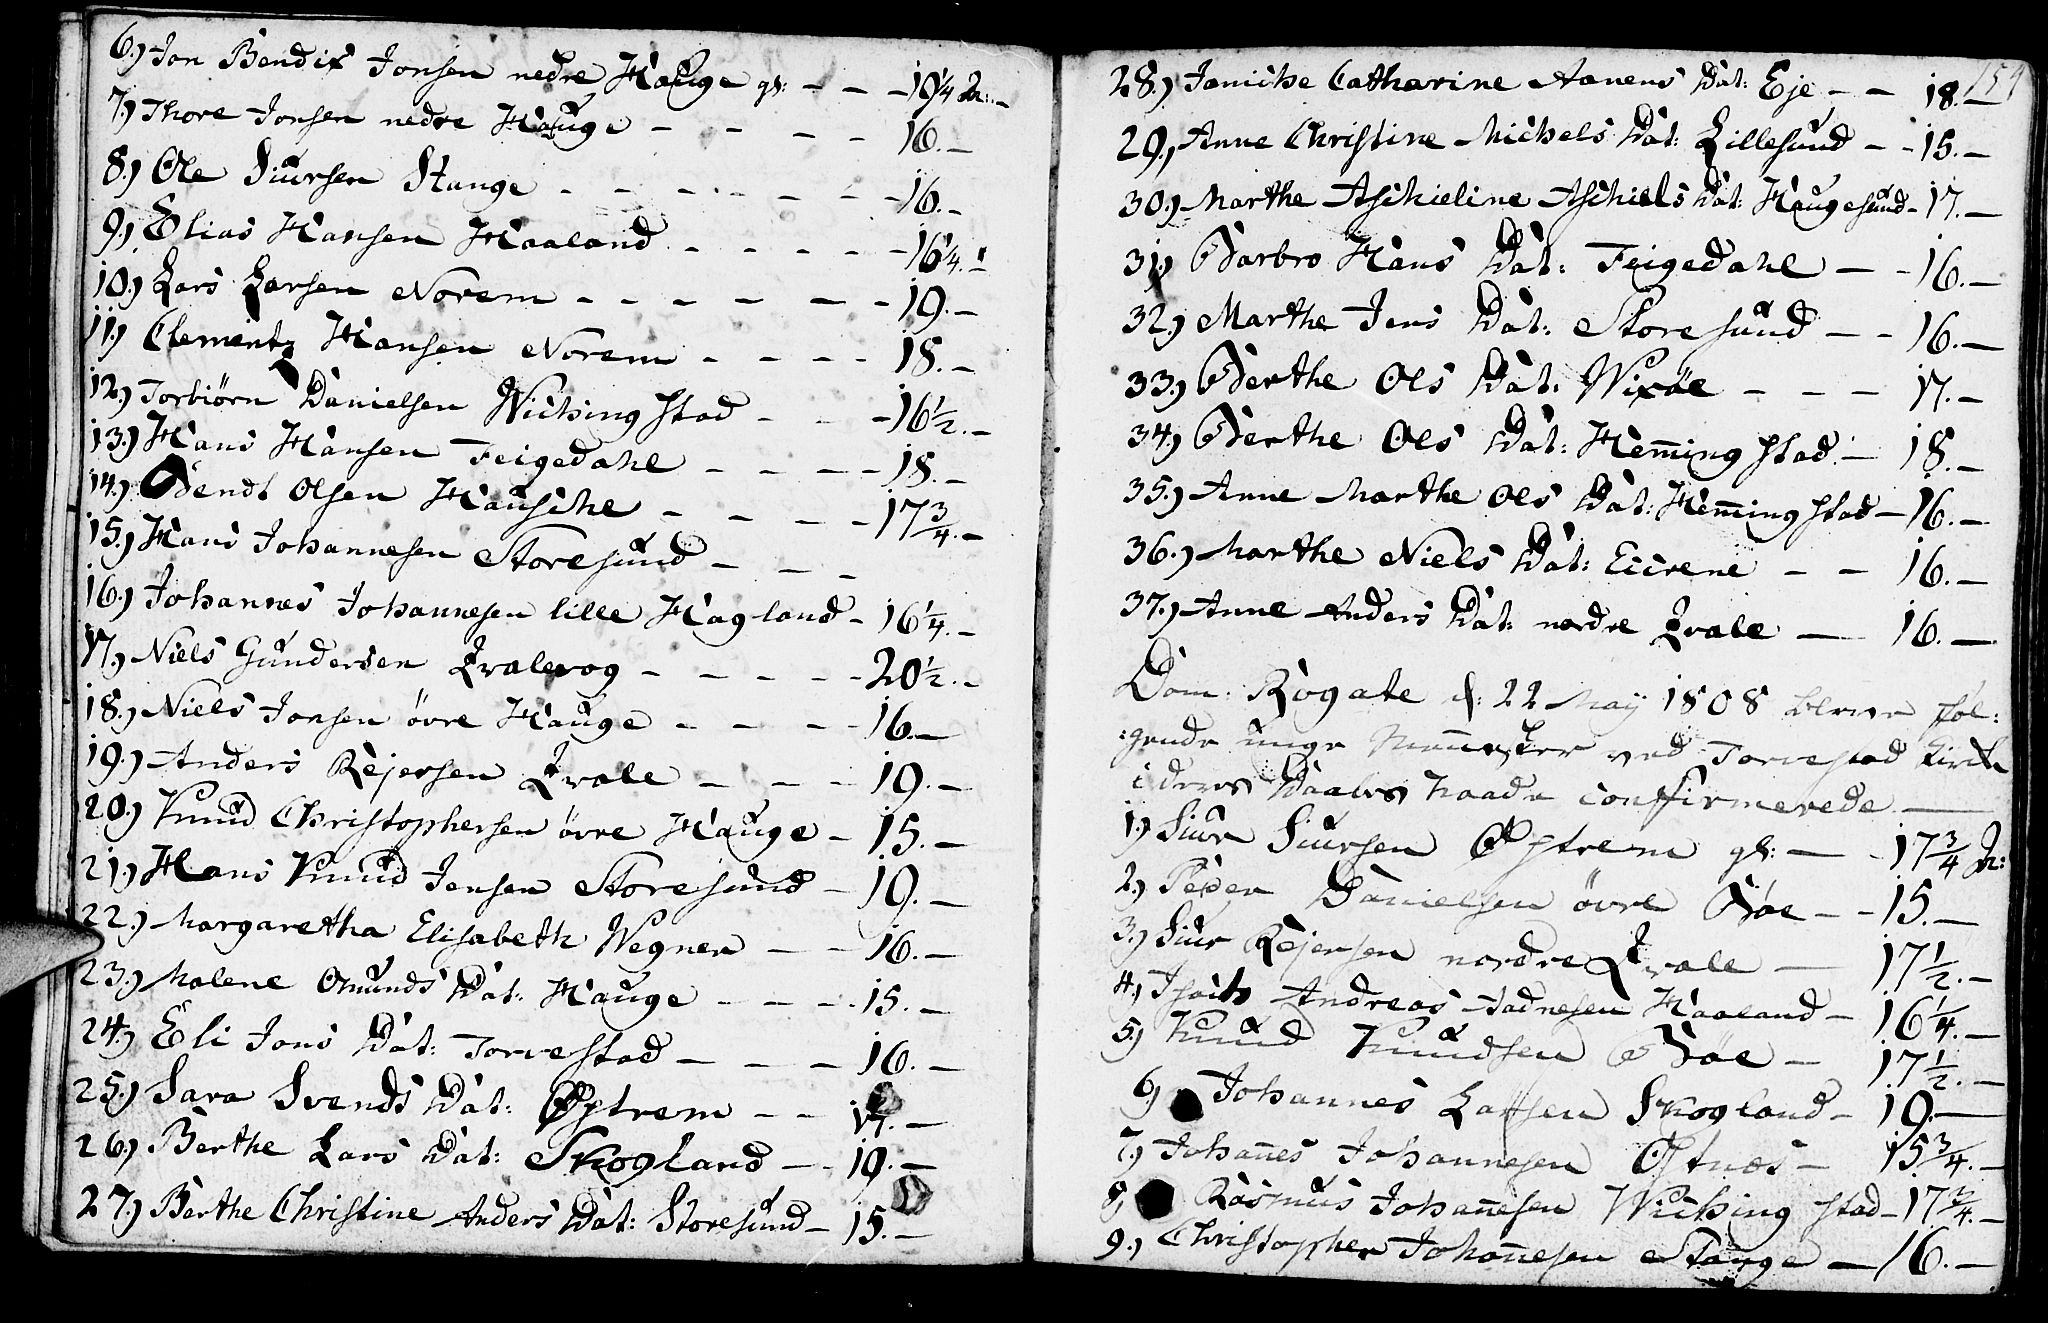 6.) Jon Bendix Jonsen nedre Hauge gl: - - - 19¼ År: -
7.) Thore Jonsen nedre Hauge - - - - 16. -
8.) Ole Siursen Stange - - - - - - - 16. -
9.) Elias Hansen Haaland - - - - - 16¼. -
10.) Lars Larsen Norem - - - - - - - 19. -
11.) Clementz Hansen Norem - - - - 18. -
12.) Torbiörn Danielsen Wichingstad - - - 16½. -
13.) Hans Hansen Feigedahl - - - - - 18. -
14.) Bendt Olsen Hauschе - - - - - 17¾. -
15.) Hans Johannesen Storesund - - -
16.) Johannes Johannesen lille Hagland - 16¼. -
17.) Niels Gundersen Qvalevog - - - - - 20½. -
18.) Niels Jonsen övre Hauge - - - - 16. -
19.) Anders Rejersen Qvale - - - - 19. -
20.) Knud Christophersen övre Hauge - 15. -
21.) Hans Knud Jensen Storesund - 19. -
22.) Margaretha Elisabeth Wegner - - 16. -
23.) Malene Omunds Dat: Hauge - - - 15. -
24.) Eli Jons Dat: Torvestad - - - - 16. -
25.) Sara Svends Dat: Østrem - - - 17. -
26.) Berthe Lars Dat: Skogland - - 19. -
27.) Berthe Christine Anders Dat: Storesund - 15. -
159
28.) Janicke Catharine Aanens Dat: Eje - - 18. -
29.) Anne Christine Michels Dat: Lillesund - - 15. -
30.) Marthe Aschieline Aschiels Dat: Haugesund - 17. -
31.) Barbro Hans Dat: Feigedahl - - 16. -
32.) Marthe Jens Dat: Storesund - - 16. -
33.) Berthe Ols Dat: Wixöe - - - 17. -
34.) Berthe Ols Dat: Hem̅ingstad - 18. -
35.) Anne Marthe Ols Dat: Hem̅ingstad - 16. -
36.) Marthe Niels Dat: Eicrene - - 16. -
37.) Anne Anders Dat: nordre Qvale - 16. -
Dom: Rogate d: 22 May 1808 bleve föl:
:gende unge Men̅esker ved Torvestad Kirke
i deres Daabes Naade confirmerede -
1.) Siur Siursen Østrem gl: - - 17¾ År:
2.) Peder Danielsen övre Böe - - 15. -
3.) Siur Rejersen nordre Qvale - 17½. -
4.) Andreas Aadnesen Haaland - 16¼. -
5.) Knud Knudsen Böe - 17½. -
6.) Johannes Larsen Skogland - 19. -
7.) Johan̅es Johannesen Østnes - 15¾. -
8.) Rasmus Johan̅esen Wichingstad - 17¾. -
9.) Christopher Johan̅esen Stange - 16. -